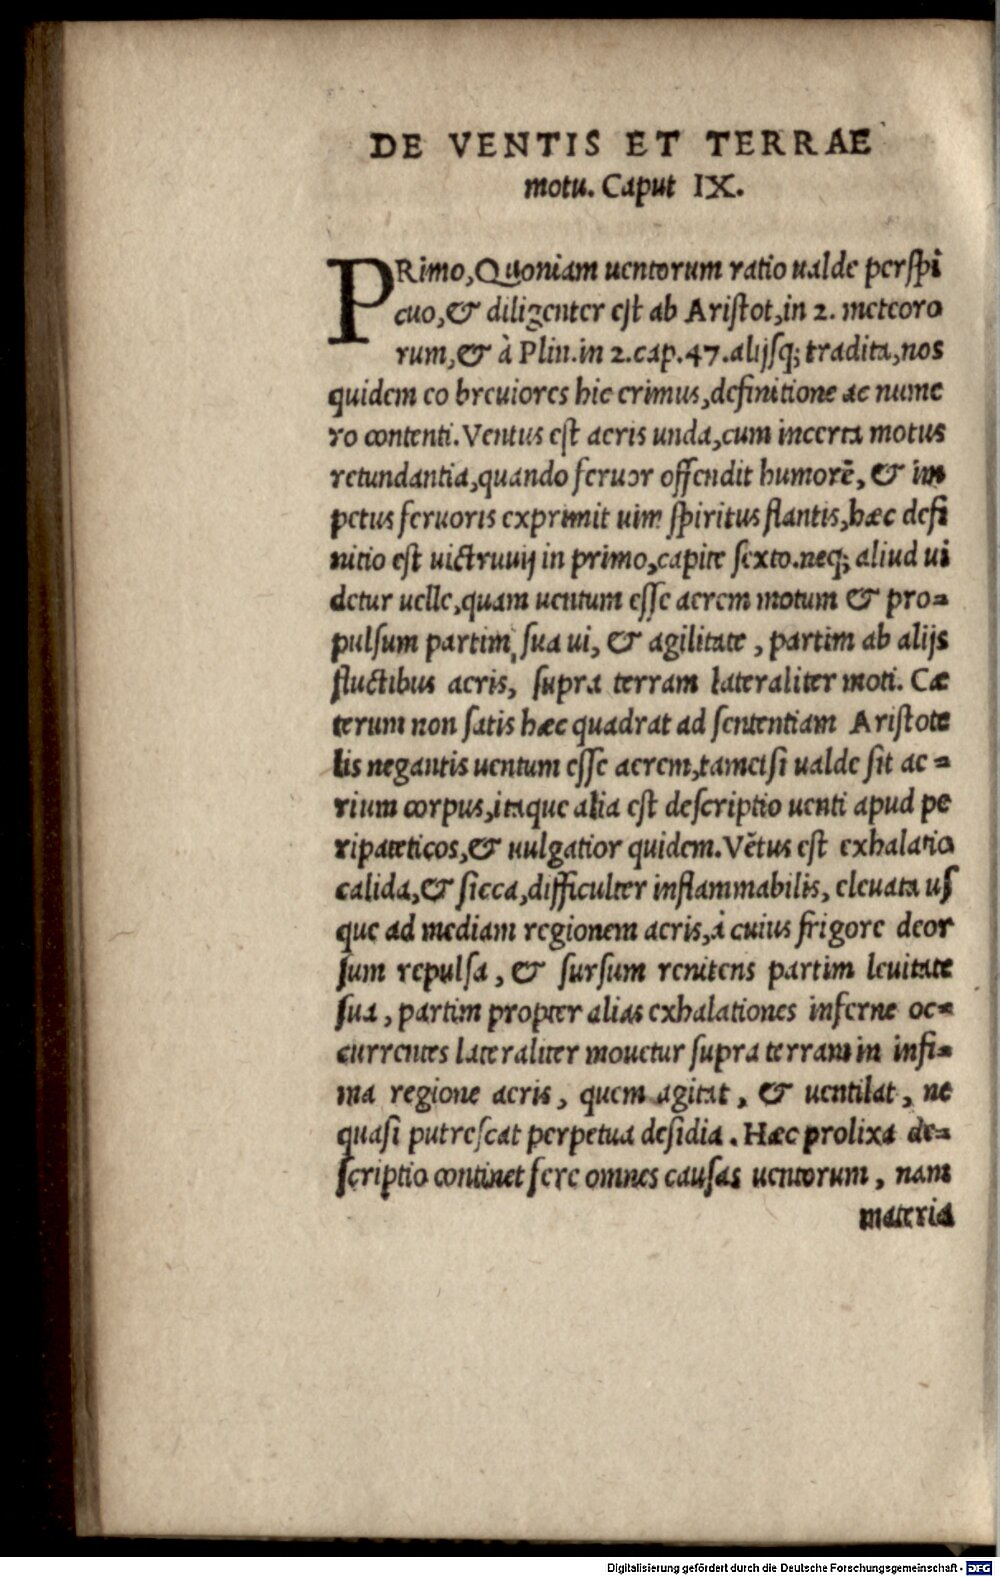 DE VENTIS ET TERRAE
motu. Caput IX.
PRimo, Quoniam uentorum ratio ualde perspi
cuo, & diligenter est ab Aristot, in 2. meteoro
rum, & à Plin. in 2. cap. 47. alijsq; tradita, nos
quidem eo breuiores hic erimus, definitione ac nume
ro contenti. Ventus est aeris unda, cum incerta motus
retundantia, quando feruor offendit humorē, & im
petus feruoris exprimit uim spiritus flantis, hæc defi
nitio est uictruuij in primo, capite sexto. neq; aliud ui
detur uelle, quam uentum esse aerem motum & pro=
pulsum partim sua ui, & agilitate, partim ab alijs
fluctibus aeris, supra terram lateraliter moti. Cæ
terum non satis hæc quadrat ad sententiam Aristote
lis negantis uentum esse aerem, tametsi ualde sit ae=
rium corpus, itaque alia est descriptio uenti apud pe
ripateticos, & uulgatior quidem. Vētus est exhalatio
calida, & sicca, difficulter inflammabilis, eleuata us
que ad mediam regionem aeris, à cuius frigore deor
sum repulsa, & sursum renitens partim leuitate
sua, partim propter alias exhalationes inferne oc=
currentes lateraliter mouetur supra terram in infi=
ma regione aeris, quem agitat, & uentilat, ne
quasi putrescat perpetua desidia. Hæc prolixa de=
scriptio continet fere omnes causas uentorum, nam
materia
Digitalisierung gefördert durch die Deutsche Forschungsgemeinschaft - DFG